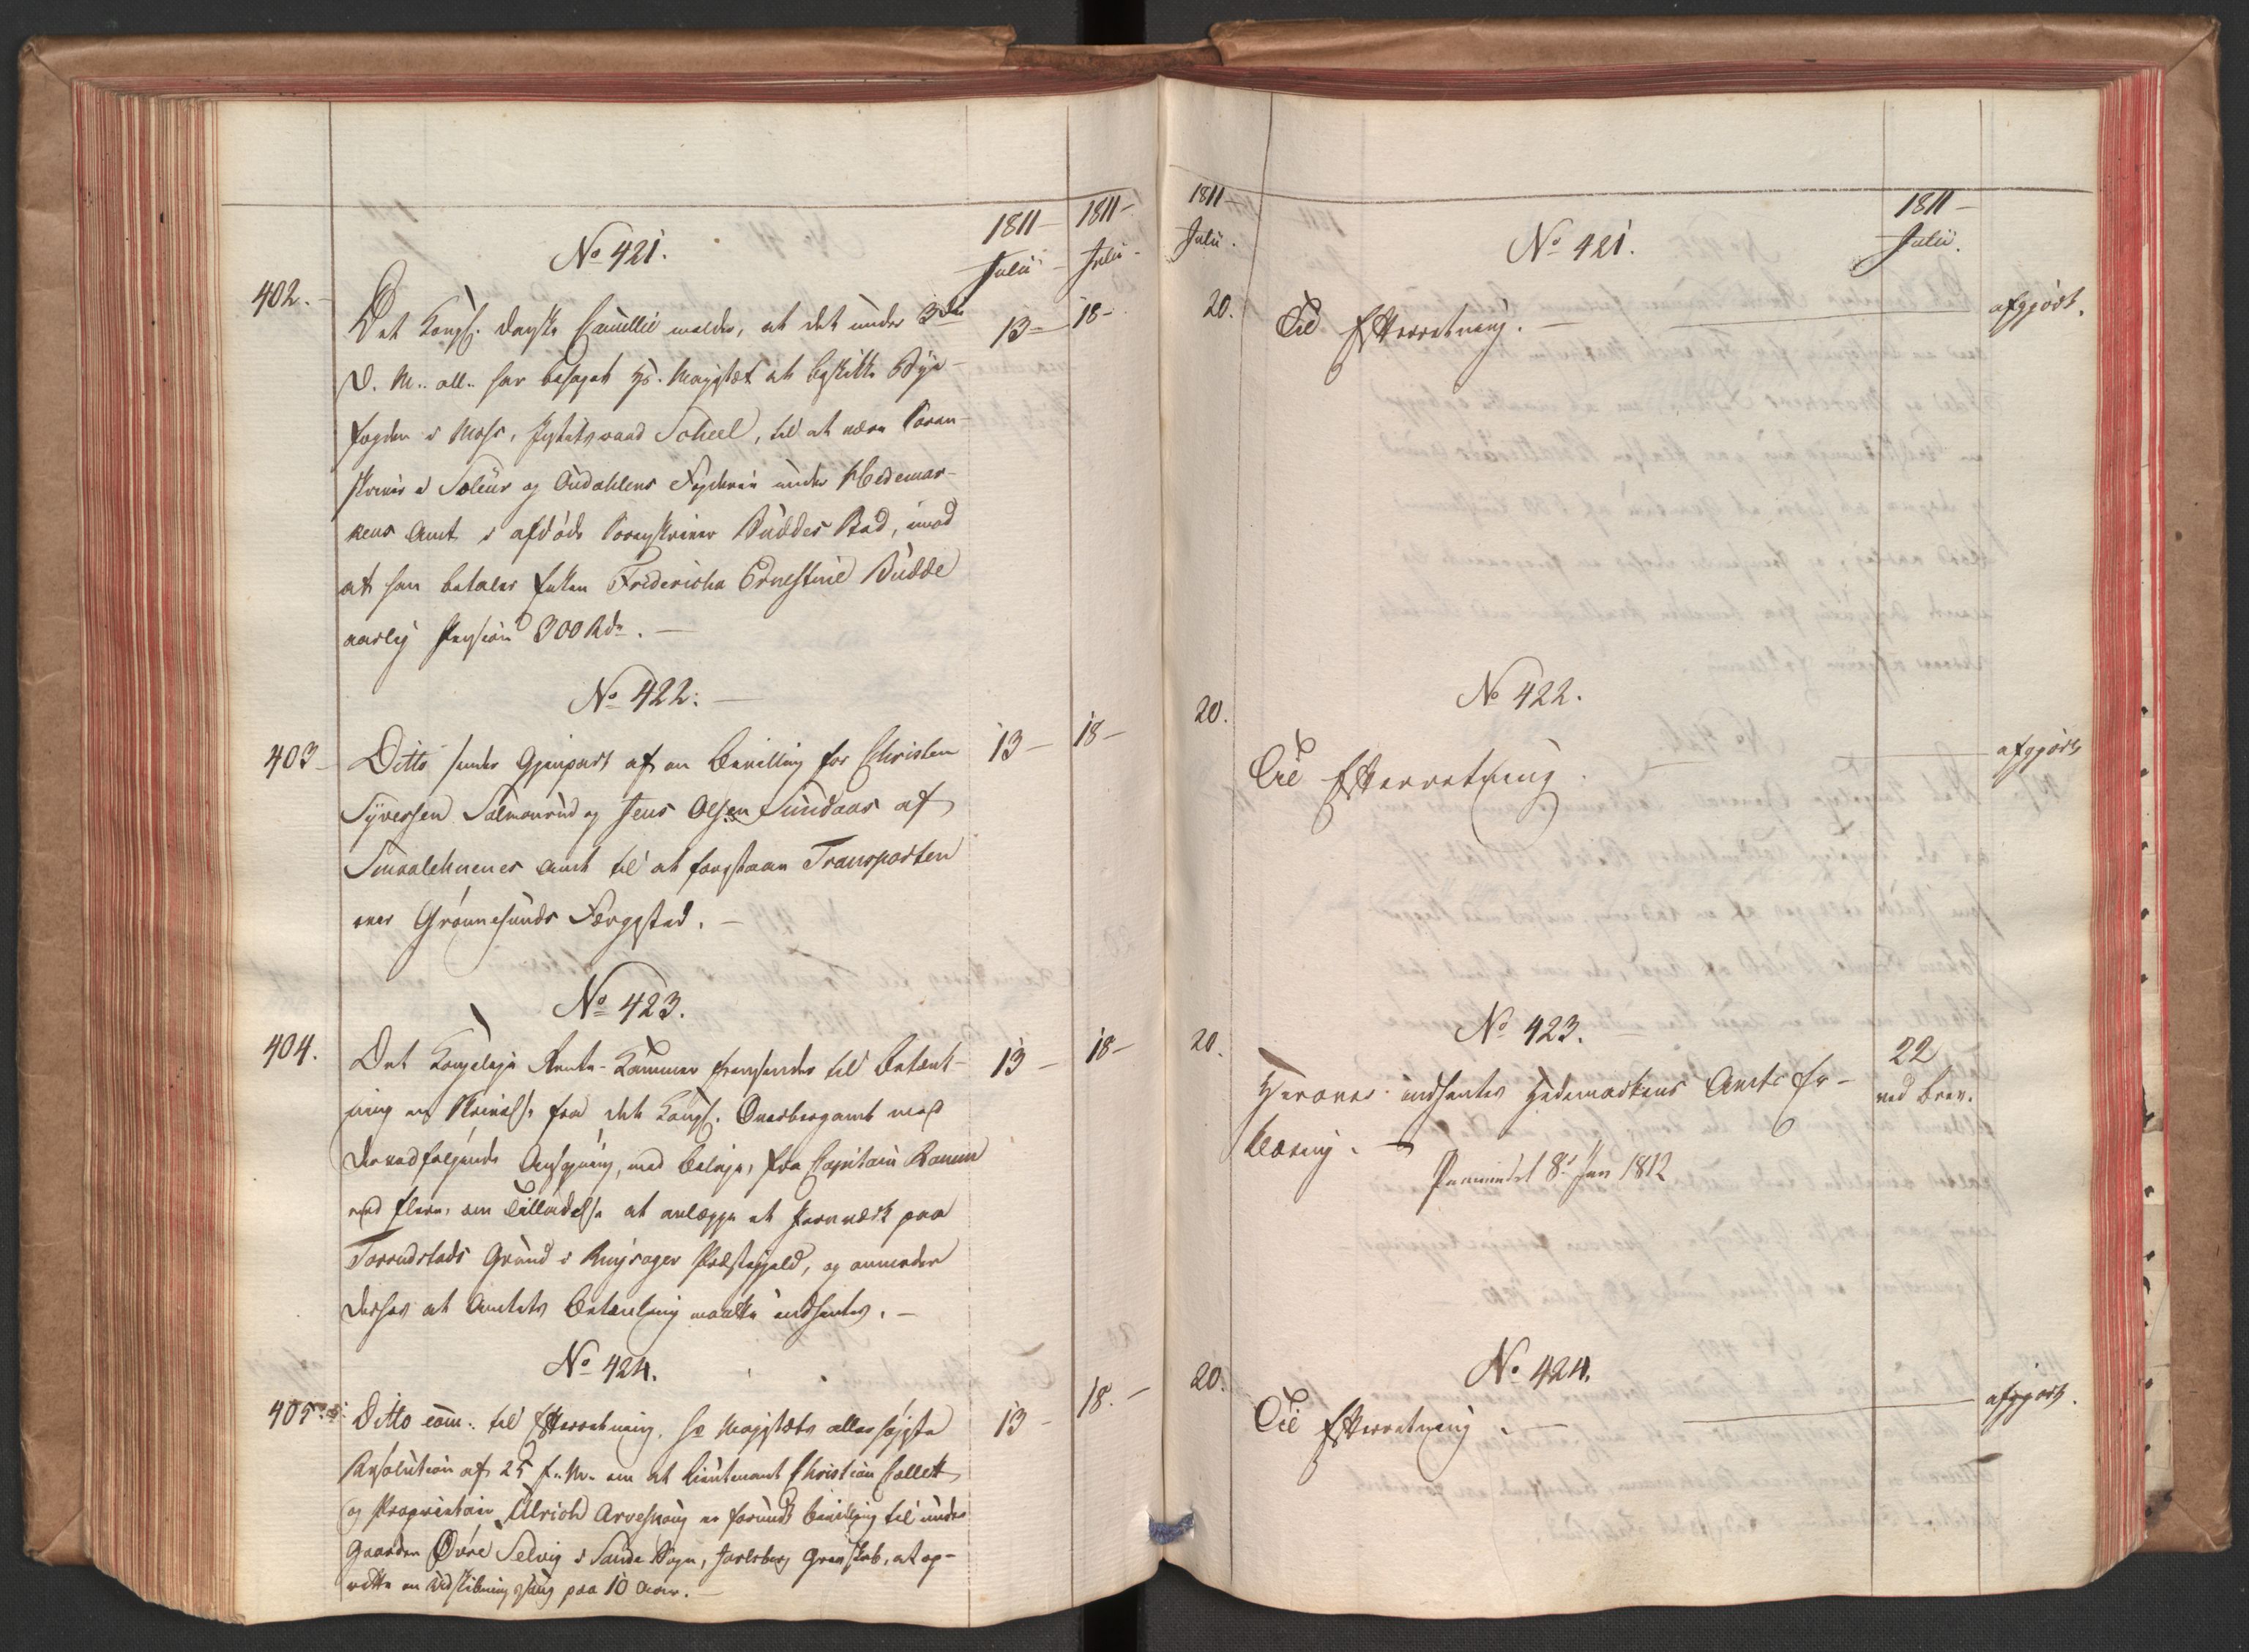 1811 – 1811 –
Julii – Julii –
No 421.
402. Det Kongl: danske Cancellie melder, at det under 3die 13 – 18 –
d. M. all. har behaget Hs. Majestæt at beskikke Bye-
fogden i Moss, Justitsraad Scheel, til at være Soren-
skriver i Soleür og Oüdahlens Fogderie under Hedemar-
kens Amt i afdøde Sorenskriver Büddes Sted, imod
at han betaler Enken Fridericha Ernestine Büdde
aarlig Pension 300 Rdr. –
No 422. –
403 – Ditto sender Gjenpart af en Bevilling for Christen 13 – 18 –
Syversen Salmonrud og Jens Olsen Sündaas af
Smaalehnenes Amt til at forestaae Transporten
over Grønnesunds Færgested. –
No 423.
404. Det Kongelige Rente-Kammer fremsender til Betænk- 13 – 18 –
ning en Skrivelse fra det Kongl. Overbergamt med
derved følgende Ansøgning, med Bilage, fra Capitain Ramm
med flere, om Tilladelse at anlægge et Jernværk paa
Torrudstads Grund i Ringsager Præstegjeld, og anmoder
derhos at Amtets Betænkning maatte indhentes. –
No 424.
405. Ditto com: til Efterretning, Hs Majestæts allerhøjeste 13 – 18. –
Resolution af 25 f. M. om at Lieutenant Christian Collett
og Proprietair Ulrich Arveskoug er forundt Bevilling til under
Gaarden Øvre Selvig i Sande Sogn, Jarlsberg Grevskab, at op-
rette en Udskibningssaug paa 10 Aar. –
1811 – 1811 –
Julii. Julii.
No 421.
20. Til Efterretning. – afgjort.
No 422.
20. Til Efterretning. afgjort
No 423.
20. Herover indhentes Hedemarkens Amts Er- 22
klæring. – ved Brev.
Paamindet 8de Jan 1812
No 424.
20. Til Efterretning. – afgjort.